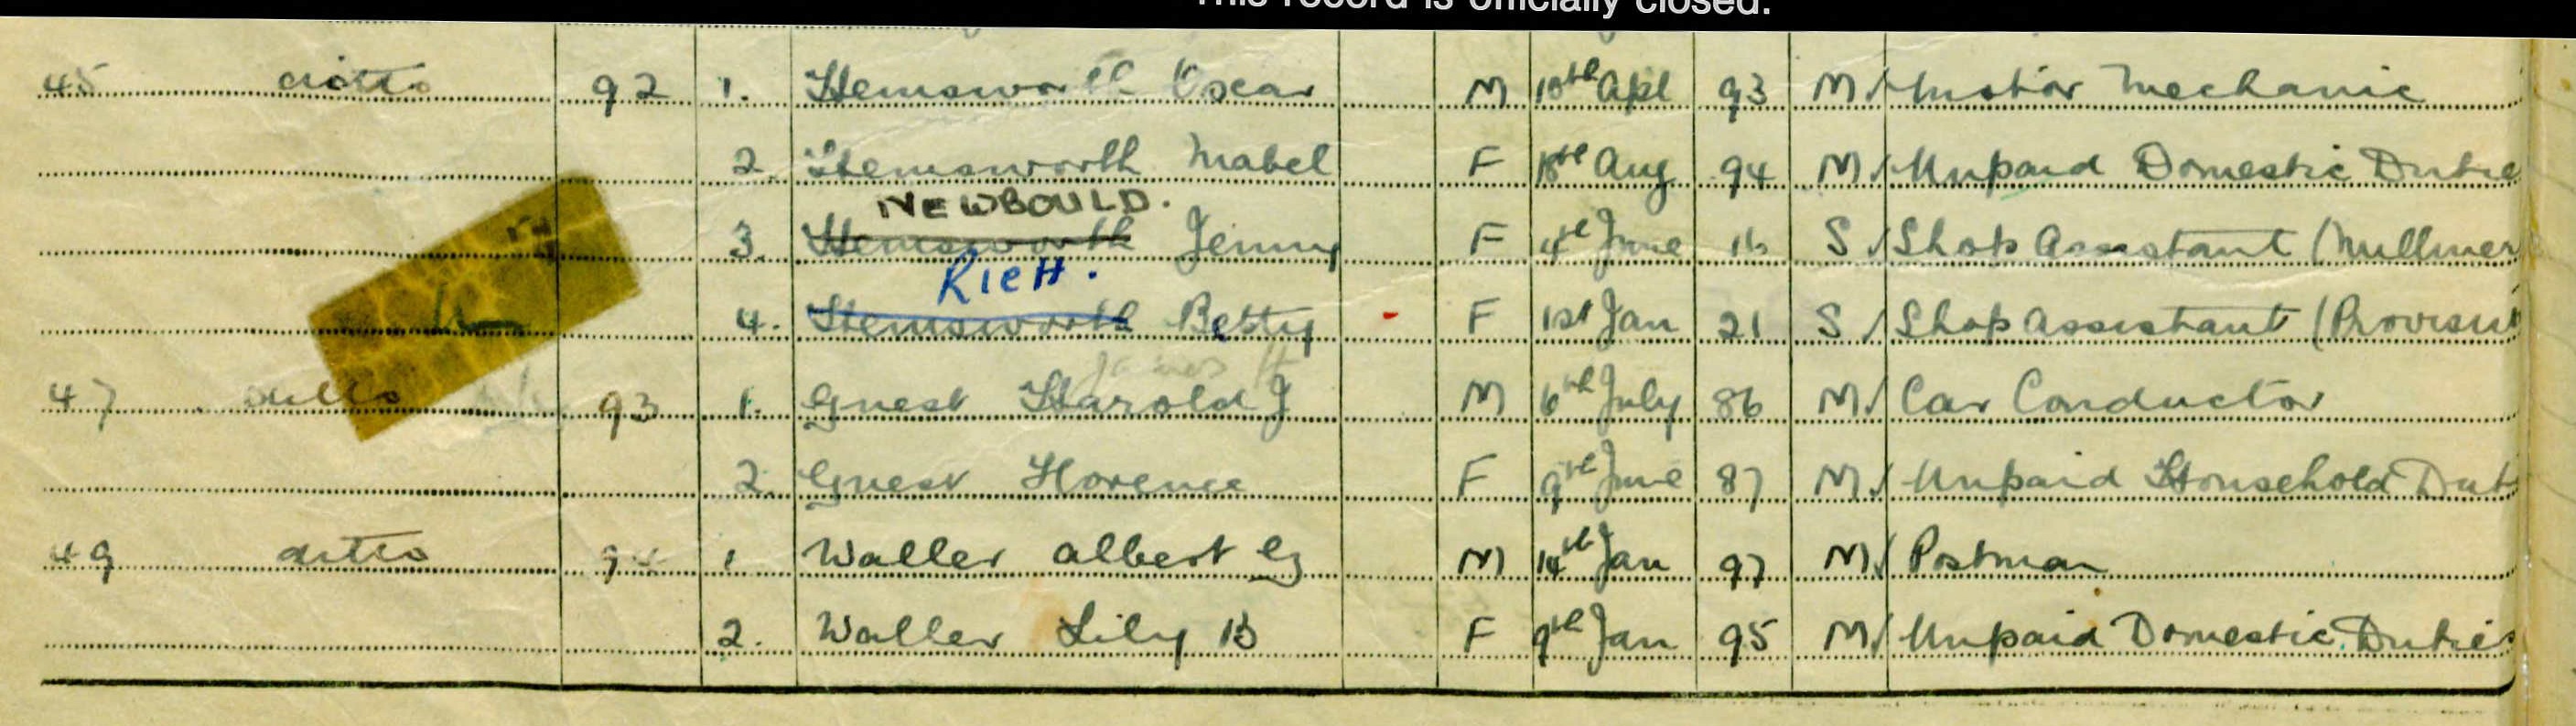 This record is officially closed.
45 ditto 92 1. Hemsworth Oscar M 10th Apl 93 M / Motor Mechanic
2. Hemsworth Mabel F 18th Aug 94 M / Unpaid Domestic Dutie
NEWBOULD.
3. Hemsworth Jenny F 4th June 16 S / Shop Assistant (Milliner
RICH.
4. Hemsworth Betty - F 1st Jan 21 S / Shop Assistant (Provisio
James H
47 ditto 93 1. Guest Harold J M 6th July 86 M / Car Conductor
2. Guest Florence F 9th June 87 M / Unpaid Household Dut
49 ditto 94 1. Waller Albert G M 14th Jan 97 M / Postman
2. Waller Lily B F 9th Jan 95 M / Unpaid Domestic Duties